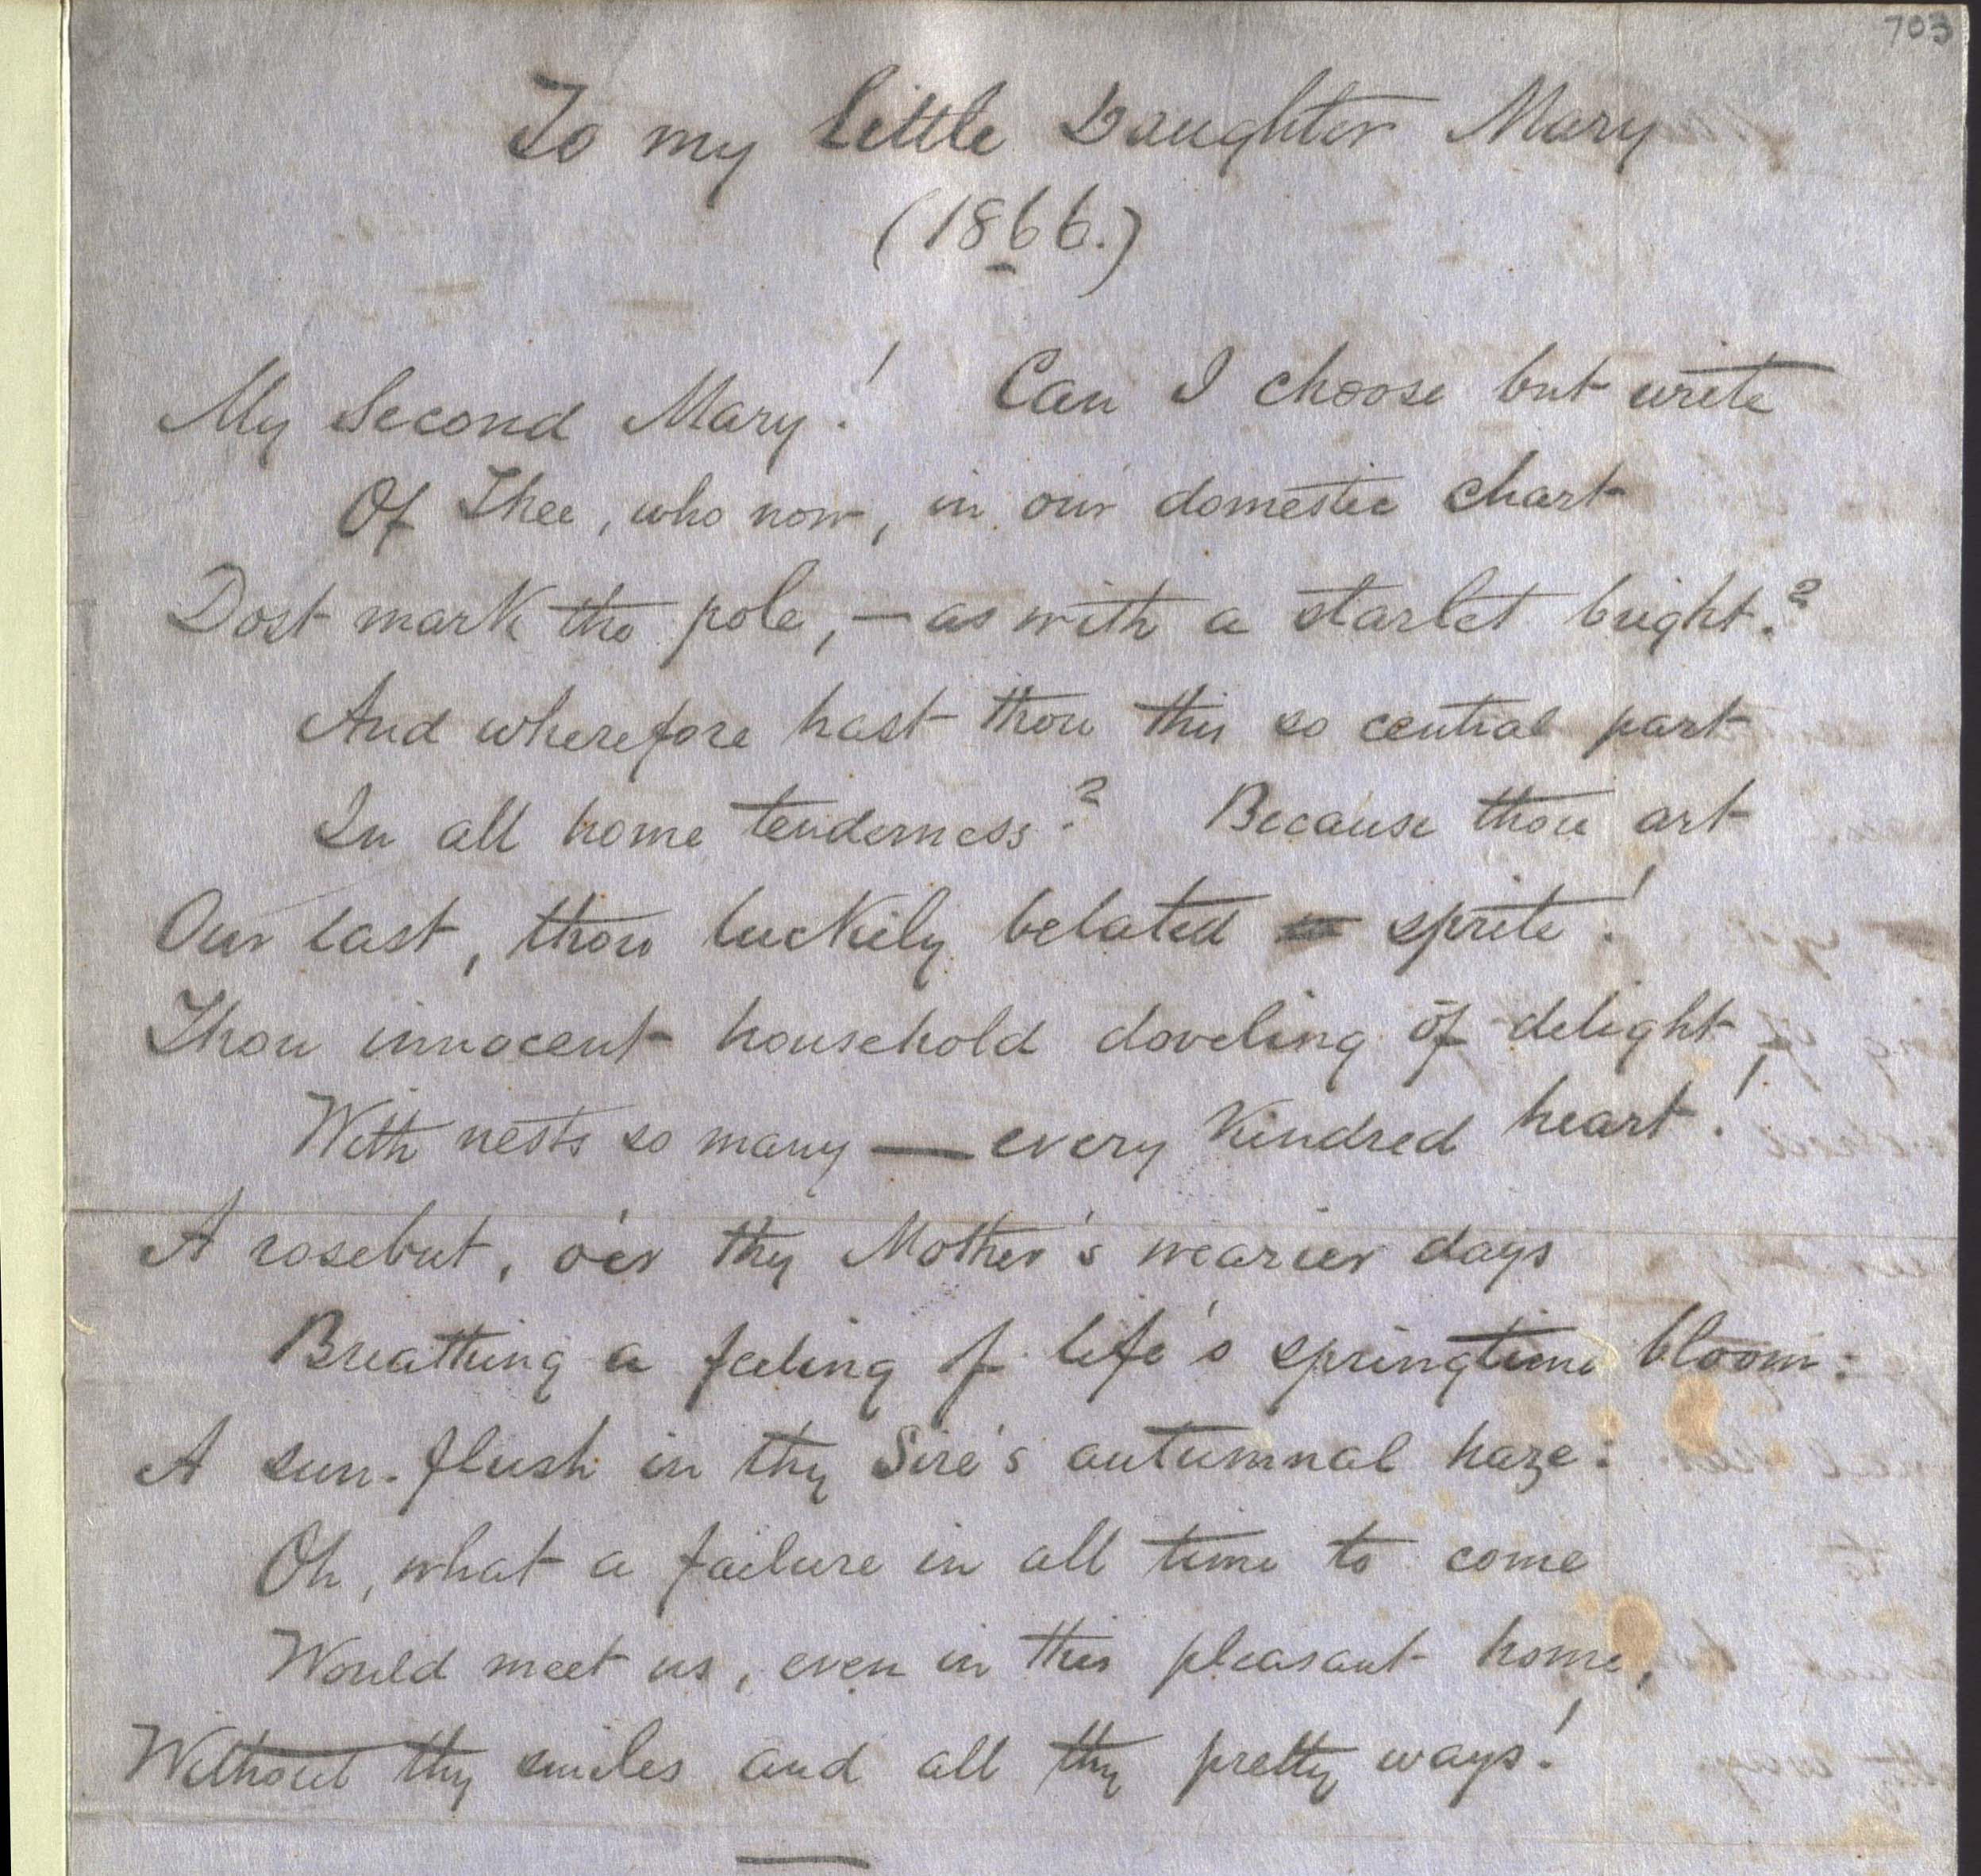 703
To my little Daughter Mary
(1866.)
My Second Mary! Can I choose but write
Of Thee, who now, in our domestic chart
Dost mark the pole, — as with a starlet bright?
And wherefore hast thou this so central part
In all home tenderness? Because thou art
Our last, thou luckily belated sprite!
Thou innocent household doveling of delight,
With nests so many — every kindred heart!
A rosebut, o'er thy Mother's wearier days
Breathing a feeling of life's springtime bloom:
A sun-flush in thy Sire's autumnal haze:
Oh, what a failure in all time to come
Would meet us, even in this pleasant home,
Without thy smiles and all thy pretty ways!